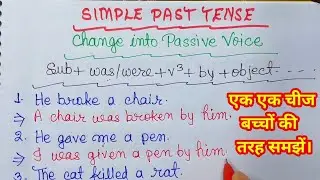 SIMPLE PAST TENSE
Change into Passive Voice
Sub + was/were + v³ + by + object - - - -
1. He broke a chair.
⇒ A chair was broken by him.
2. He gave me a pen.
⇒ I was given a pen by him.
3. The cat killed a rat.
एक एक चीज
बच्चों की
तरह समझें।